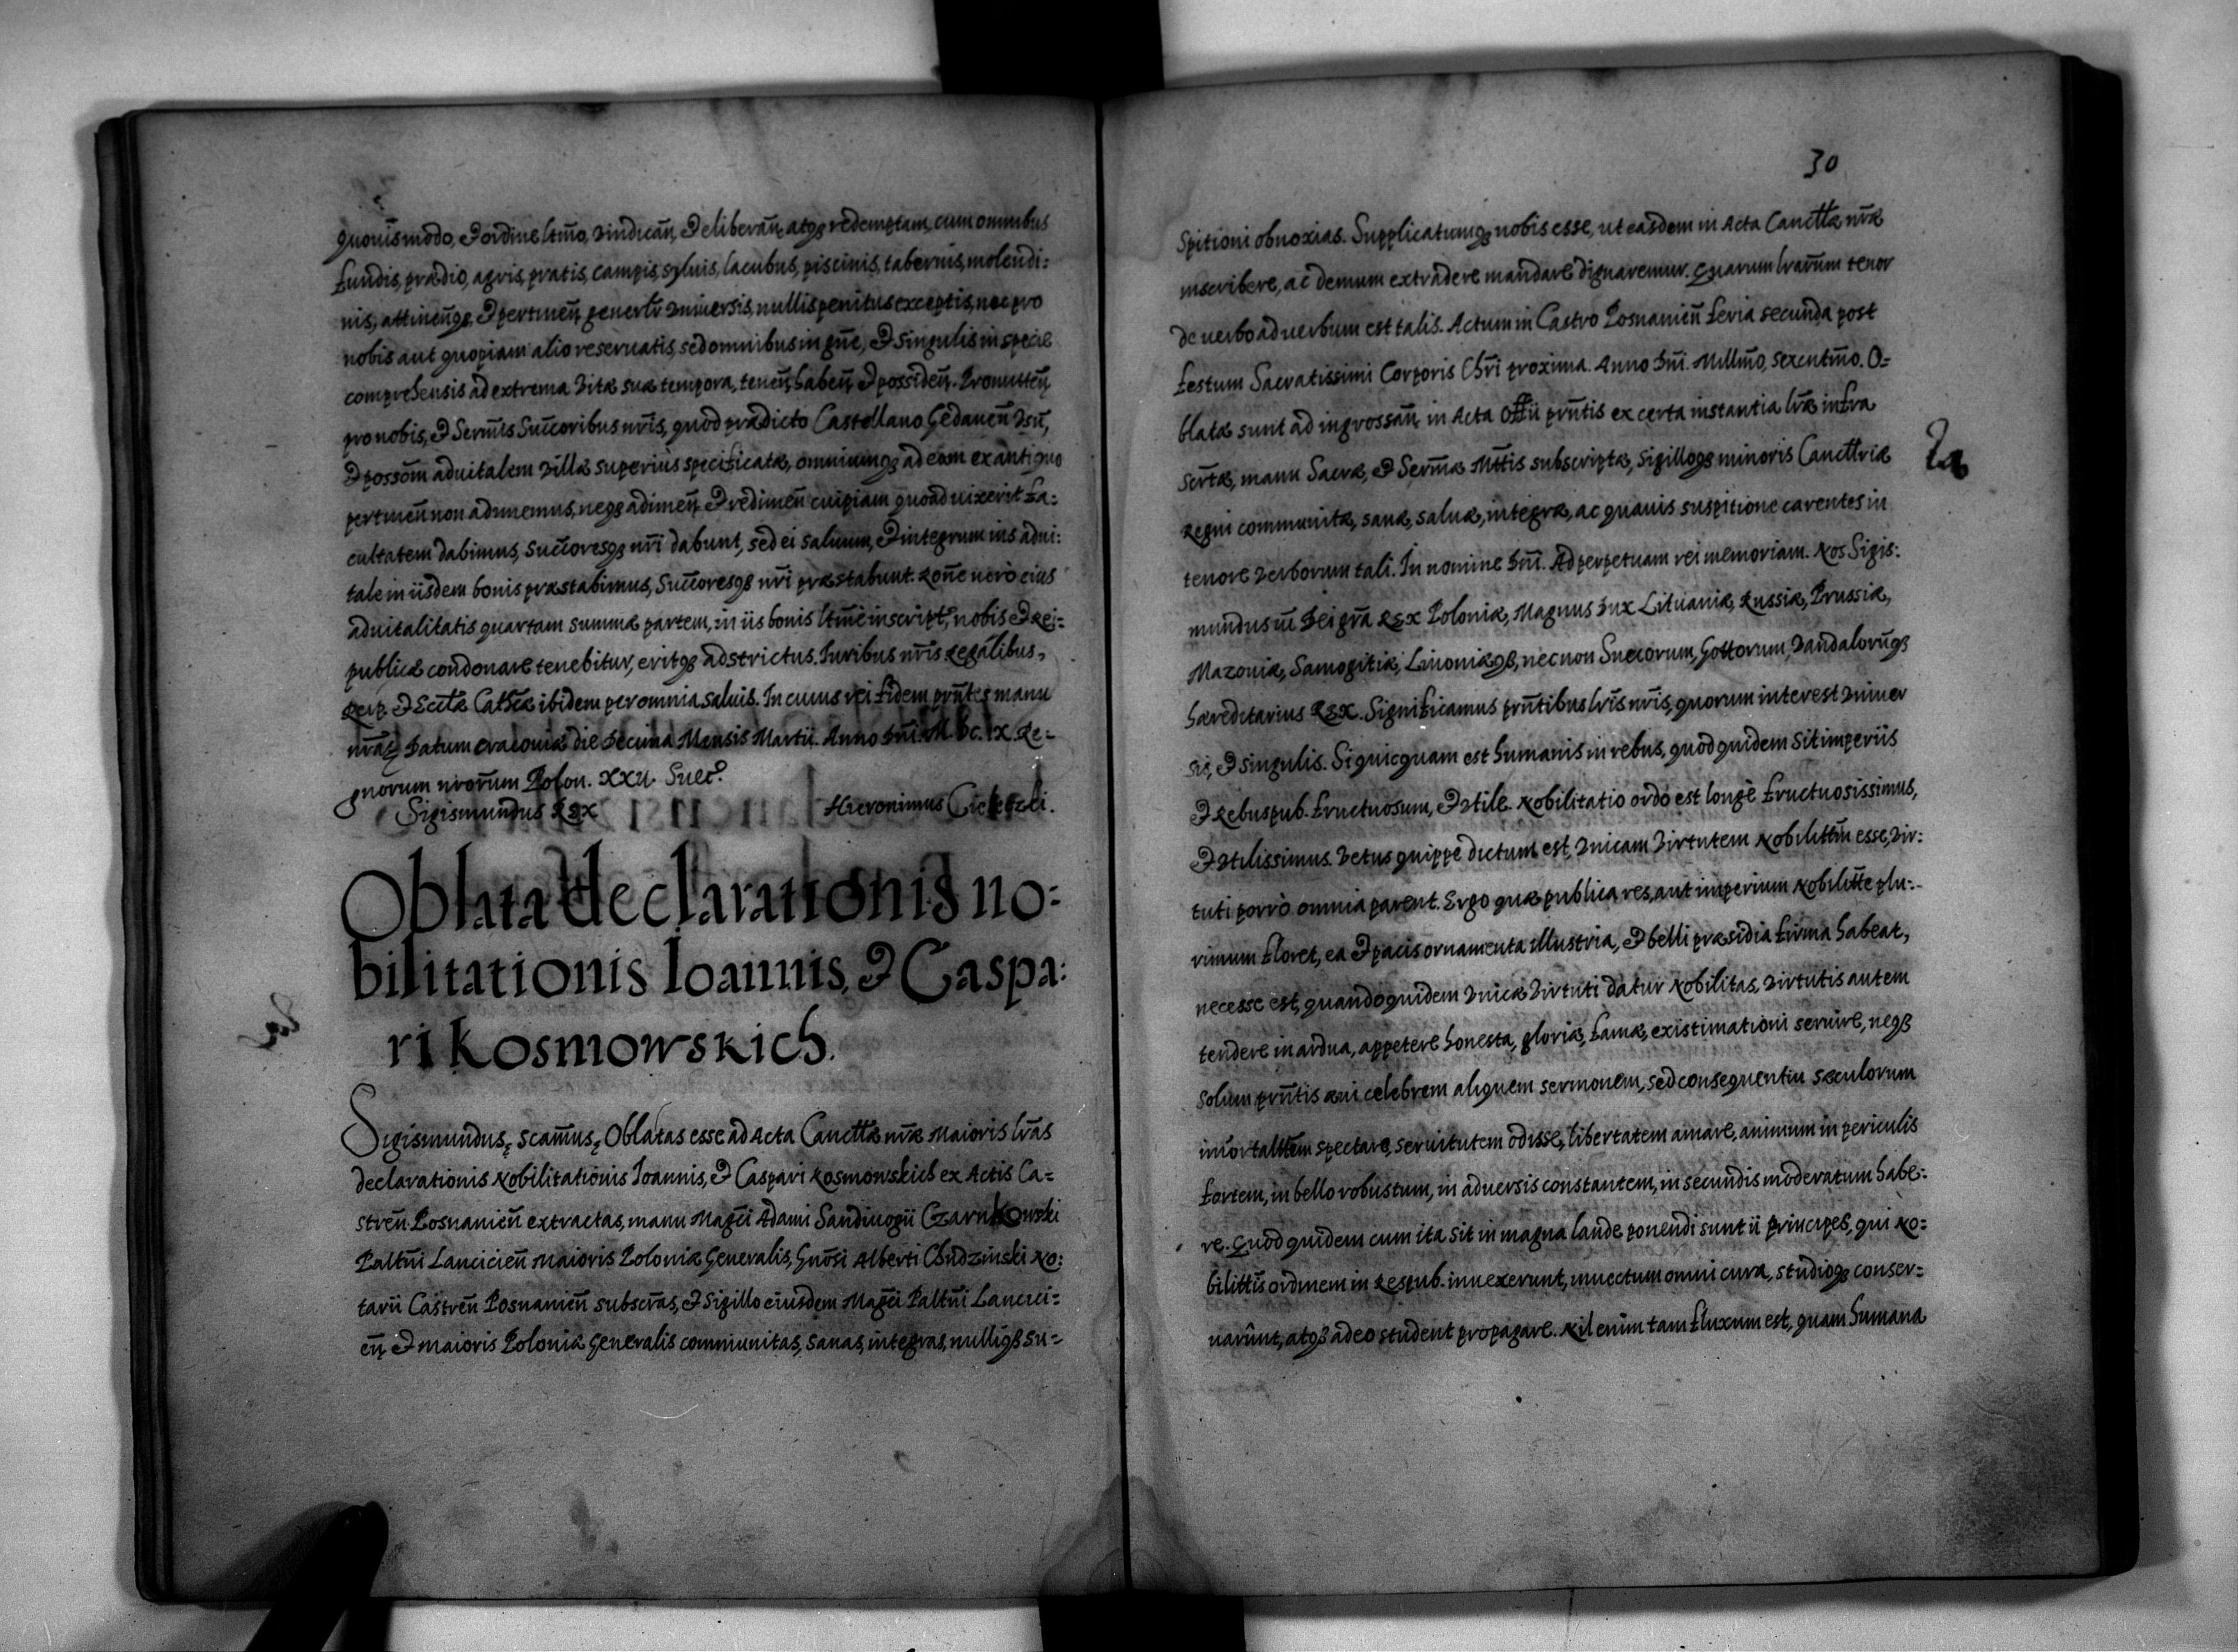 quouismodo, & ordine ltm̃o, vindicañ, & liberañ, atq3 redemptam, cum omnibus
fundis, prædio, agris, pratis, campis, syluis, lacubus, piscinis, tabernis, molendi:
nis, attineñq3, & pertineñ, generlr̃ vniuersis, nullis penitus exceptis, nec pro
nobis aut quopiam alio reseruatis, sed omnibus in gñe, & singulis in specie
comprehensis ad extrema vitæ suæ tempora, teneñ, habeñ, & possideñ. Promitteñ
pro nobis, & Serm̃is Succ̃oribus nr̃is, quod prædicto Castellano Gedaneñ vsũ,
& possom̃ aduitalem villæ superius specificatæ, omniumq3 ad eam ex antiquo
pertineñ non adimemus, neq3 adimeñ, & redimeñ cuipiam quoad uixerit fa:
cultatem dabimus, Succ̃oresq3 nr̃i dabunt, sed ei saluum, & integrum ius adui:
tale in iisdem bonis præstabimus, Succ̃oresq3 nr̃i præstabunt. Roñe uerò eius
aduitalitatis quartam summæ partem, in iis bonis ltm̃e inscriptæ, nobis & Rei=
publicæ condonare tenebitur, eritq3 adstrictus. Iuribus nr̃is Regalibus,
Reip. & Eccłæ Cathcæ ibidem per omnia saluis. In cuius rei fidem prñtes manu
nr̃as Datum Cracouiæ die Decima Mensis Martii Anno Dñi. M.DC.IX. Re=
gnorum nrorum Polon. XXII. Suec.
Sigismundus Rex Hieronimus Cieleczki.
Oblata declarationis no:
bilitationis Ioannis, & Caspa:
ri Kosmowskich.
Sigismundus, scam̃us, Oblatas esse ad Acta Cancttæ nr̃æ Maioris lr̃as
declarationis Nobilitationis Ioannis, & Caspari Kosmowskich ex Actis Ca=
streñ Posnanieñ extractas, manu Magc̃i Adami Sandiuogii Czarnkowski
Paltñi Lancicieñ Maioris Poloniæ Generalis, Gnõsi Alberti Chudzinski No:
tarii Castreñ Posnanieñ subscr̃as, & Sigillo eiusdem Magc̃i Paltñi Lancici=
eñ, & Maioris Poloniæ Generalis communitas, sanas, integras, nulliq3 su=
30
spitioni obnoxias. Supplicatumq3 nobis esse, ut easdem in Acta Cancttæ nr̃æ
inscribere, ac demum extradere mandare dignaremur. Quarum lrarũm tenor
de uerbo ad uerbum est talis. Actum in Castro Posnanieñ feria secunda post
festum Sacratissimi Corporis Chr̃i proxima. Anno Dñi. Millm̃o, sexcentm̃o. O=
blatæ sunt ad ingrossañ in Acta Offii prñtis ex certa instantia lr̃æ infra
scr̃tæ, manu Sacræ, & Serm̃æ Mttis subscriptæ, Sigilloq3 minoris Canctriæ
Regni communitæ, sanæ, saluæ, integræ, ac quauis suspitione carentes in
tenore verborum tali. In nomine Dñi. Ad perpetuam rei memoriam. Nos Sigis:
mundus III Dei grã Rex Poloniæ, Magnus Dux Lituaniæ, Russiæ, Prussiæ,
Mazouiæ, Samogitiæ, Liuoniæq3, necnon Suecorum, Gottorum, Vandalorũq3
hæreditarius Rex. Significamus prñtibus lr̃is nr̃is, quorum interest vniuer
sis, & singulis. Si quicquam est humanis in rebus, quod quidem sit imperiis
& Rebuspub. fructuosum, & vtile. Nobilitatio ordo est longè fructuosissimus,
& vtilissimus. Vetus quippe dictum est, vnicam Virtutem Nobilittm̃ esse, Vir:
tuti porrò omnia parent. Ergo quæ publica res, aut imperium Nobilitte plu:
rimum floret, ea & pacis ornamenta illustria, & belli præsidia firma habeat,
necesse est, quandoquidem vnicæ Virtuti datur Nobilitas, Virtutis autem
tendere in ardua, appetere honesta, gloriæ, famæ, existimationi seruire, neq3
solum prñtis æui celebrem aliquem sermonem, sed consequentiu sæculorum
imor̃talttem̃ spectare, seruitutem odisse, libertatem amare, animum in periculis
fortem, in bello robustum, in aduersis constantem, in secundis moderatum habe:
re. Quod quidem cum ita sit in magna laude ponendi sunt ii principes, qui No:
bilittis ordinem in Respub. inuexerunt, inuectum omni cura, studioq3 conser=
uarunt, atq3 adeo student propagare. Nil enim tam fluxum est, quam humana